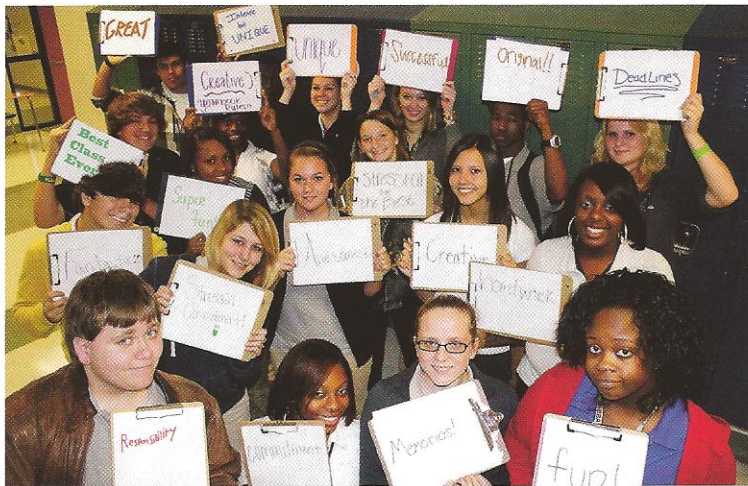 GREAT
Intense
but
UNIQUE
UNIQUE
Successful
Original!!
DeadLines
Creative
Best
Class
Ever
Super
STRESSFUL
Awesome
Creative
Hardwork
Stressful
Responsibility
Commitment
Memories!
fun!